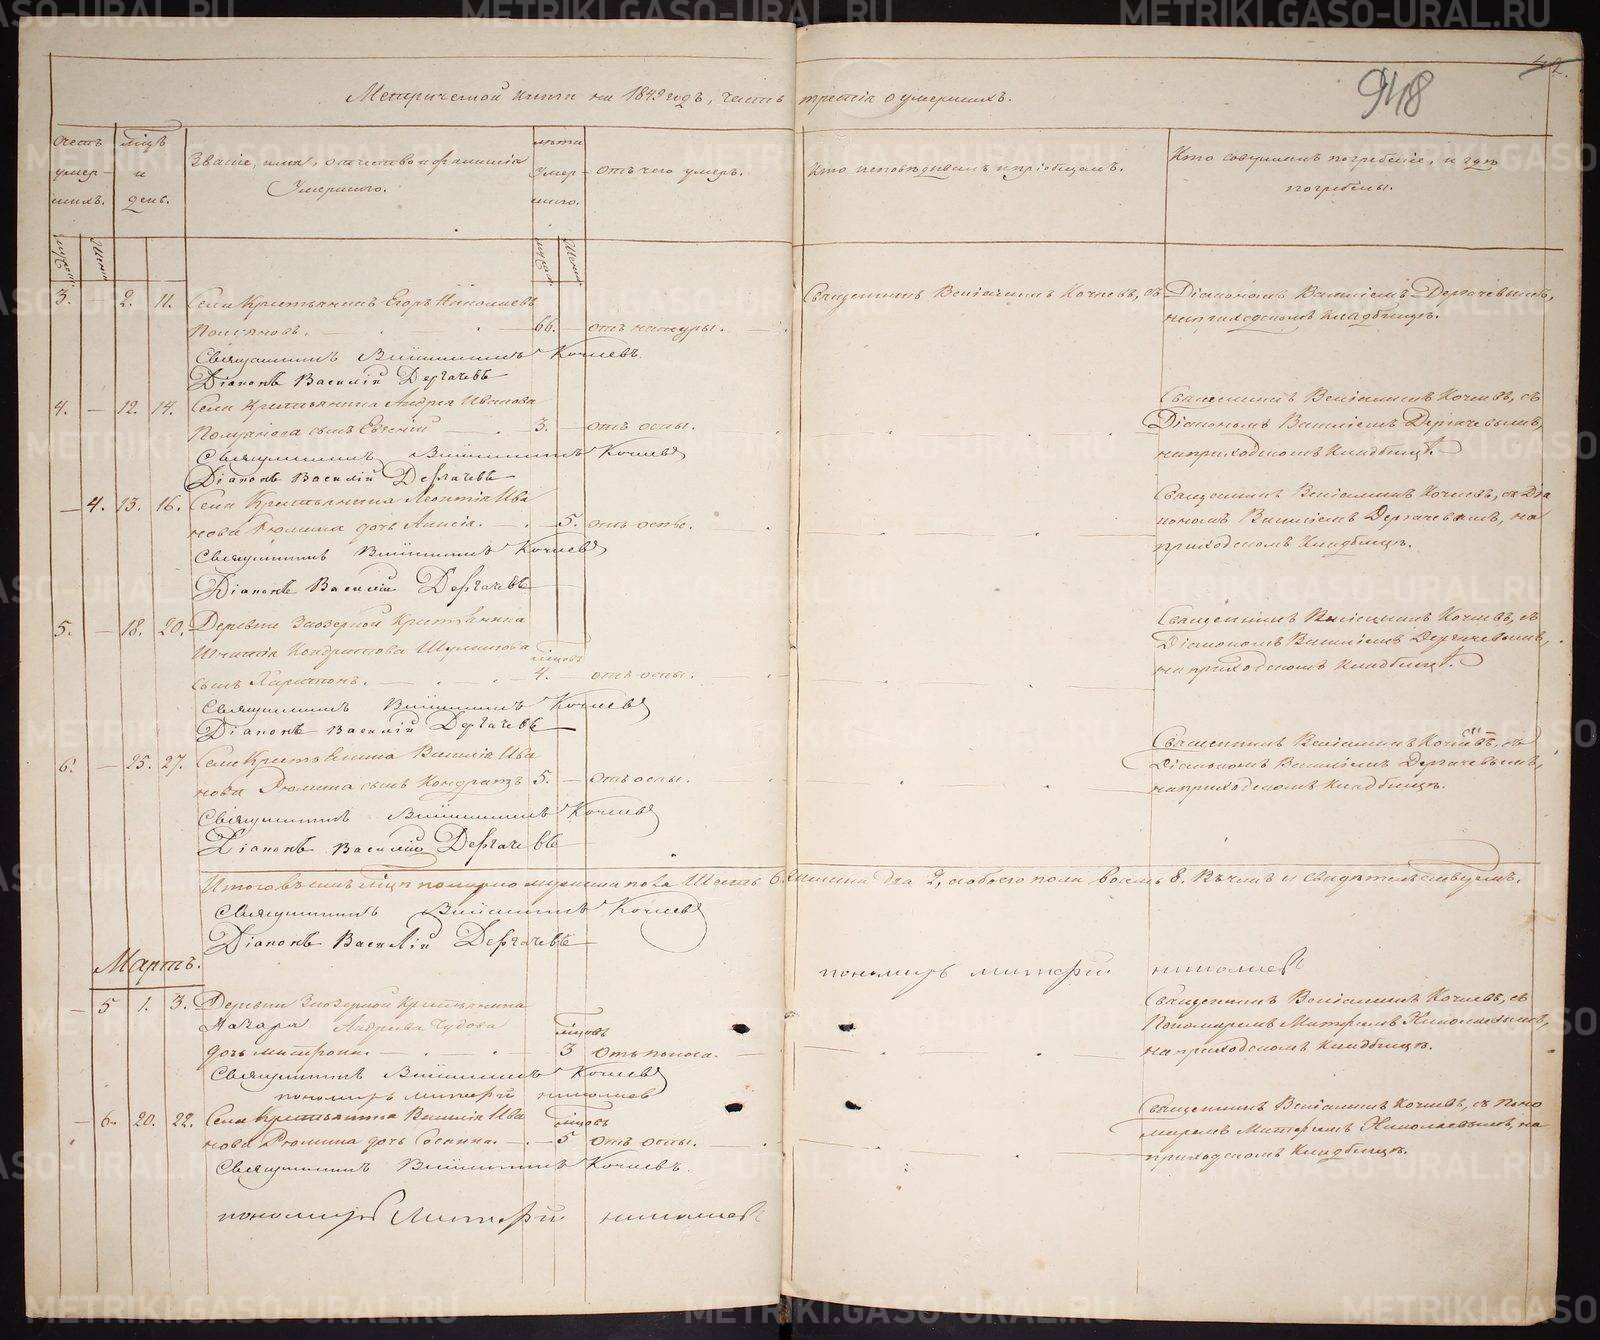 42.
948
Метрической книги на 1849 годъ, часть третія о умершихъ.
Счетъ умер- шихъ.
м҃цъ и день.
Званіе, имя, отчество и фамилія
Умершаго.
лѣта Умер- шаго.
отъ чего умеръ.
Кто исповѣдывалъ и пріобщалъ.
Кто совершилъ погребеніе, и гдѣ
погребены.
3. 2. 11. Села Крестьянинъ Егоръ Николаевъ
66. отъ натуры.
Священникъ Веніаминъ Кочневъ, съ Діакономъ Василіемъ Дергачевымъ,
на приходскомъ кладбищѣ.
Священникъ Веніаминъ Кочневъ
Діаконъ Василій Дергачевъ
4. — 12. 14. Села Крестьянина Андрея Иванова
сынъ Евгеній — 3. — отъ оспы.
Священникъ Веніаминъ Кочневъ, съ
Діакономъ Василіемъ Дергачевымъ,
на приходскомъ кладбищѣ.
Священникъ Веніаминъ Кочневъ
Діаконъ Василій Дергачевъ
— 4. 13. 16. Села Крестьянина Леонтія Ива
нова Рюмина дочь Анисія. — 5. отъ оспы.
Священникъ Веніаминъ Кочневъ, съ Діа
кономъ Василіемъ Дергачевымъ, на
приходскомъ кладбищѣ.
Священникъ Веніаминъ Кочневъ
Діаконъ Василій Дергачевъ
5. — 18. 20. Деревни Заозерной Крестьянина
Игнатія Кондратова
м҃цовъ
сынъ Харитонъ. — 4. — отъ оспы.
Священникъ Веніаминъ Кочневъ, съ
Діакономъ Василіемъ Дергачевымъ,
на приходскомъ кладбищѣ.
Священникъ Веніаминъ Кочневъ
Діаконъ Василій Дергачевъ
6. — 25. 27. Села Крестьянина Василія Ива
нова Рюмина сынъ Кондратъ 5. — отъ оспы.
Священникъ Веніаминъ Кочневъ, съ
Діакономъ Василіемъ Дергачевымъ,
на приходскомъ кладбищѣ.
Священникъ Веніаминъ Кочневъ
Діаконъ Василій Дергачевъ
Итого въ семъ м҃цѣ померло мужеска пола Шесть 6. женска два 2, а обоего пола восемь 8. Въ чемъ и свидѣтельствуемъ.
Священникъ Веніаминъ Кочневъ
Діаконъ Василій Дергачевъ
пономарь николаевъ
Мартъ.
— 5 1. 3. Деревни Заозерной Крестьянина
Макара Андреева Чудова
м҃цовъ
дочь — 3 отъ поноса.
Священникъ Веніаминъ Кочневъ, съ
Пономаремъ Николаевымъ,
на приходскомъ кладбищѣ.
Священникъ Веніаминъ Кочневъ
пономарь николаевъ
— 6. 20. 22. Села Крестьянина Василія Ива
м҃цовъ
нова Рюмина дочь — 5 отъ оспы.
Священникъ Веніаминъ Кочневъ, съ Поно
маремъ Николаевымъ, на
приходскомъ кладбищѣ.
Священникъ Веніаминъ Кочневъ.
пономарь николаевъ
METRIKI.GASO-URAL.RU